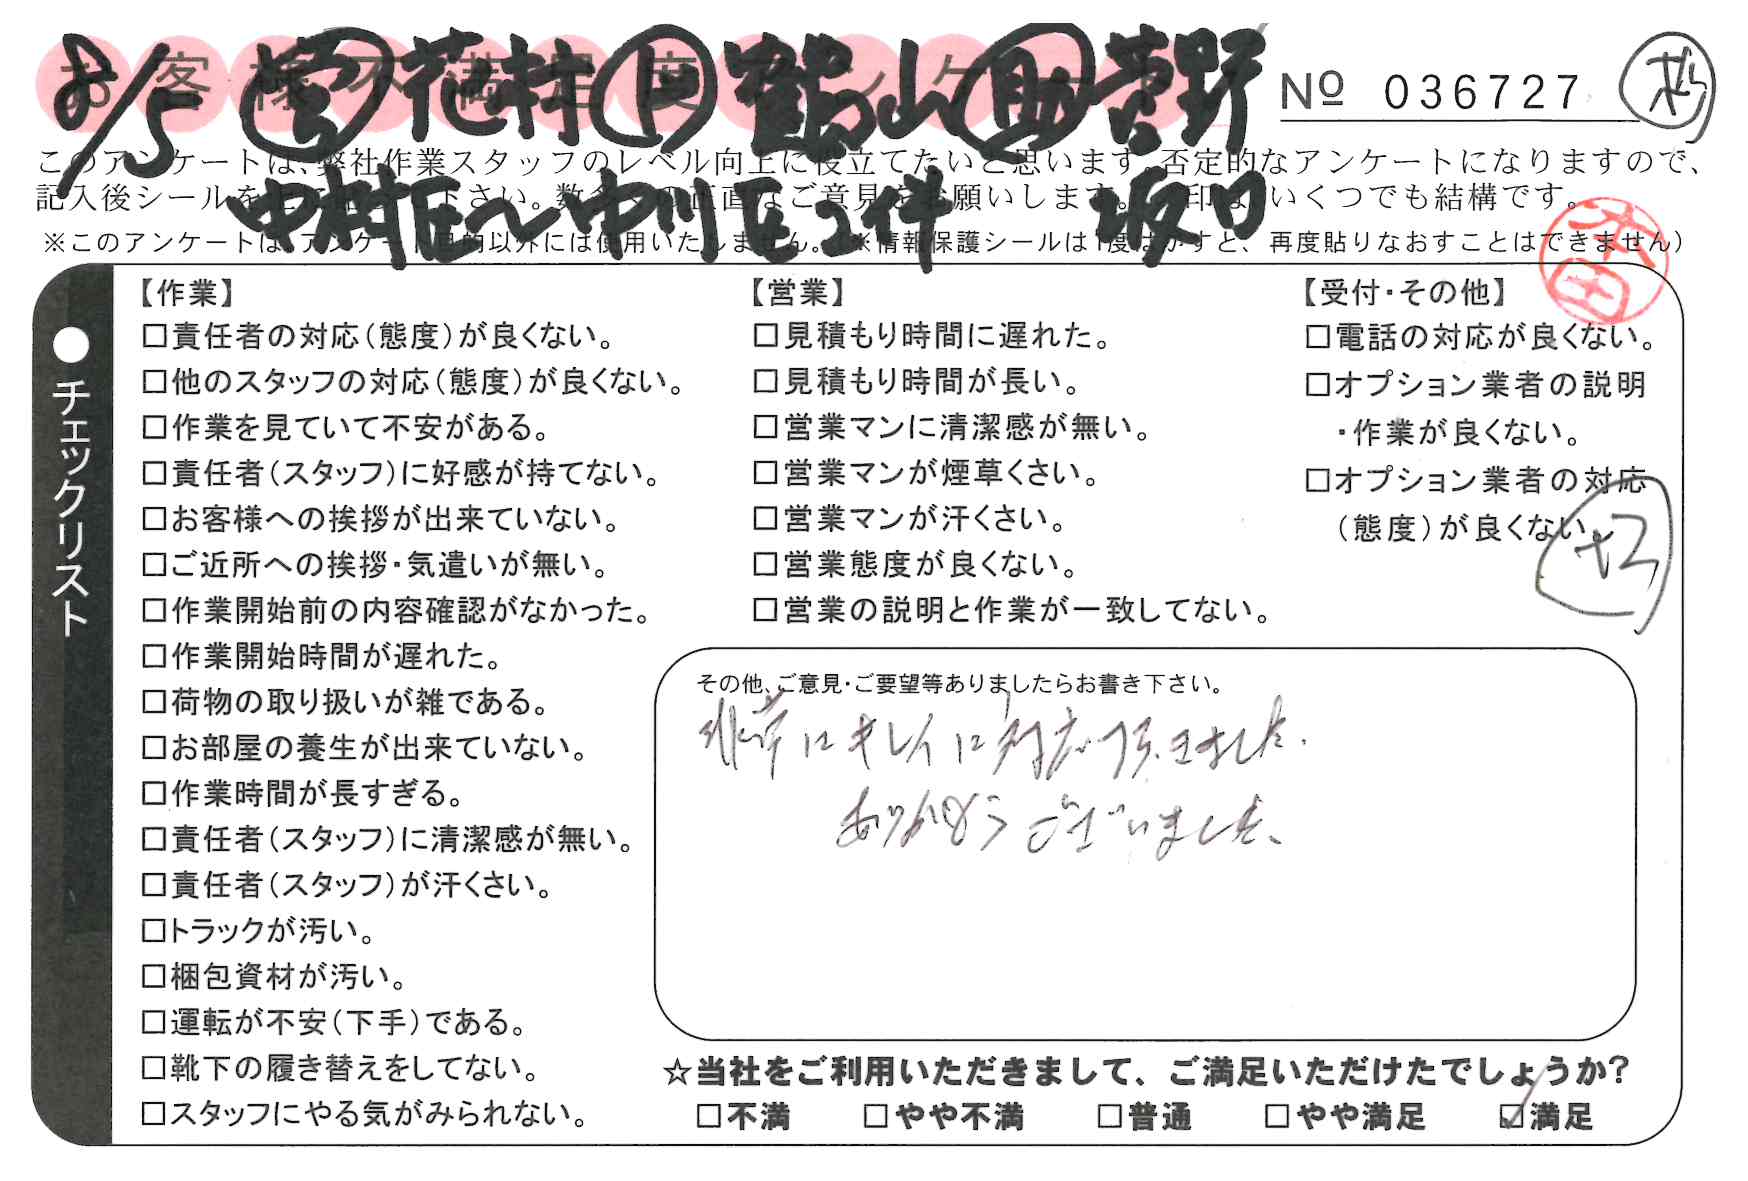 お客様不満足度アンケート
8/5 営 花村 ト 鶴山 助 菅野
№ 036727
このアンケートは、弊社作業スタッフのレベル向上に役立てたいと思います。否定的なアンケートになりますので、
記入後シールを上に貼って下さい。数多くの正直なご意見をお願いします。 印はいくつでも結構です。
中村区〜中川区2件 坂口
※このアンケートは、アンケート目的以外には使用いたしません。(※情報保護シールは1度はがすと、再度貼りなおすことはできません)
本田
●チェックリスト
【作業】
□責任者の対応(態度)が良くない。
□他のスタッフの対応(態度)が良くない。
□作業を見ていて不安がある。
□責任者(スタッフ)に好感が持てない。
□お客様への挨拶が出来ていない。
□ご近所への挨拶・気遣いが無い。
□作業開始前の内容確認がなかった。
□作業開始時間が遅れた。
□荷物の取り扱いが雑である。
□お部屋の養生が出来ていない。
□作業時間が長すぎる。
□責任者(スタッフ)に清潔感が無い。
□責任者(スタッフ)が汗くさい。
□トラックが汚い。
□梱包資材が汚い。
□運転が不安(下手)である。
□靴下の履き替えをしてない。
□スタッフにやる気がみられない。
【営業】
□見積もり時間に遅れた。
□見積もり時間が長い。
□営業マンに清潔感が無い。
□営業マンが煙草くさい。
□営業マンが汗くさい。
□営業態度が良くない。
□営業の説明と作業が一致してない。
【受付・その他】
□電話の対応が良くない。
□オプション業者の説明
・作業が良くない。
□オプション業者の対応
(態度)が良くない。
その他、ご意見・ご要望等ありましたらお書き下さい。
非常にキレイに対応頂きました.
ありがとうございました、
☆当社をご利用いただきまして、ご満足いただけたでしょうか?
□不満 □やや不満 □普通 □やや満足 ☑満足